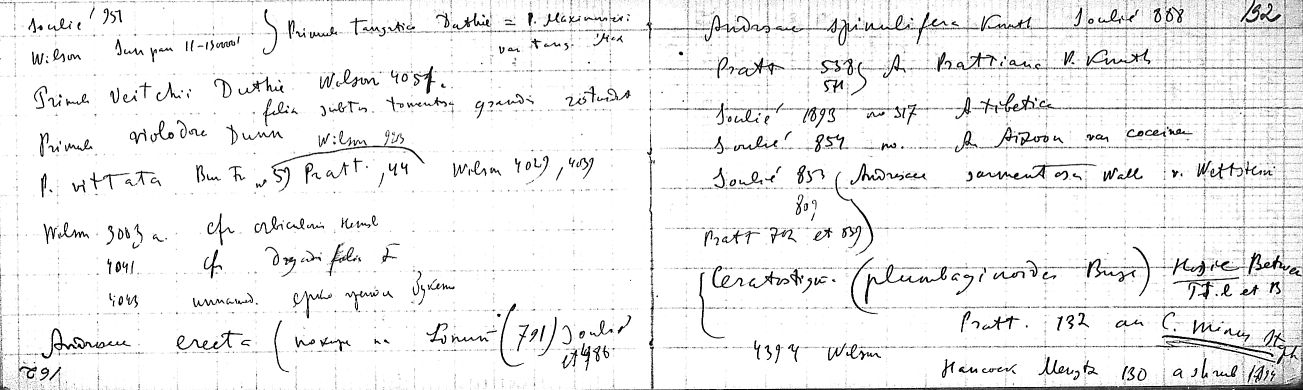 Soulié 951
Wilson Sun pan 11-13000' } Primula Tangutica Duthie = P. Maximowiczi
var tang. Max
Primula Veitchii Duthie Wilson 4051.
folia subtus tomentosa grandia rotundat
Primula violodora Dunn Wilson 923
P. vittata Bur Fr 59 Pratt, 44 Wilson 4029, 4039
Wilson 3003 a. cfr orbicularis Hemsl
4041 cfr dryadifolia F
4043 unnamed.
Androsace erecta (похуже на (791) Soulié
et 486
162
Androsace spinulifera Knuth Soulié 888 192
Pratt 538 } A Prattiana R. Knuth
511
Soulié 1893 no 317 A tibetica
Soulié 854 no. A Aizoon var coccinea
Soulié 853 Androsace sarmentosa Wall v. Wettstein
809
Pratt 702 et 839
Ceratostigma (plumbaginoides Bunge) Hosie Betwe
T.t.l et B
Pratt. 132 an C. minus Stapf
4394 Wilson
Hancock Mengtz 130 a shrub 1894